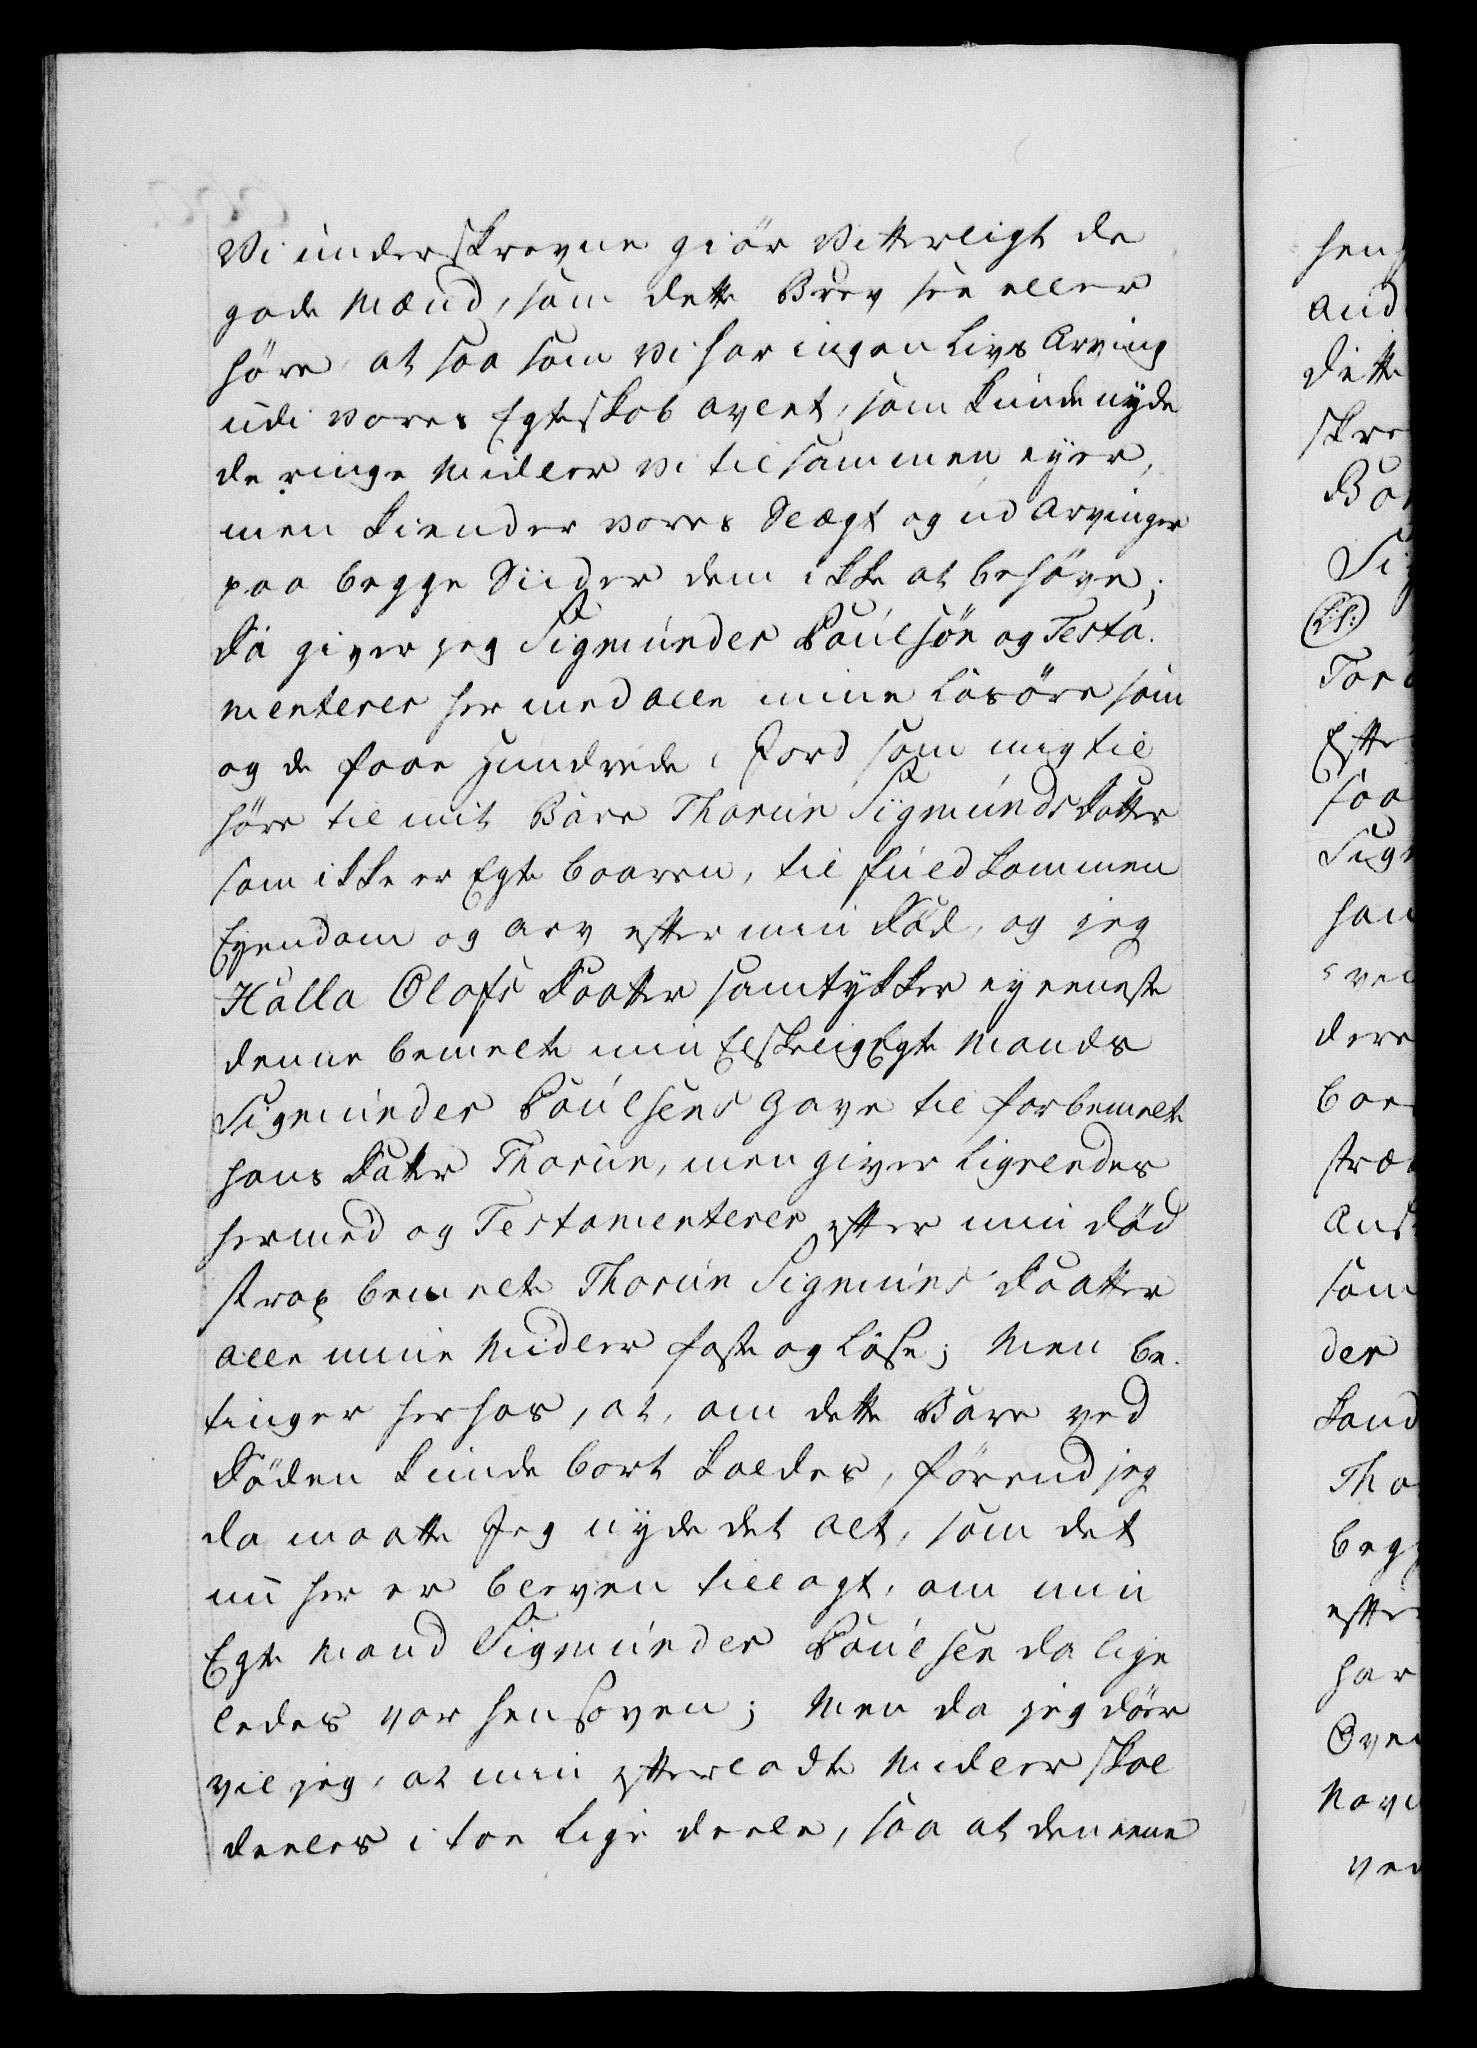 Vi underskrevne giör Vitterligt de
gode Mænd, som dette Brev see eller
höre, at saa som vi har ingen Livs Arving
udi vores Egteskab avlet, som kunde nyde
de ringe Midler vi tilsammen ejer,
men kiender vores Slægt og ud Arvinger
paa begge Siider dem ikke at behöve;
Da giver jeg Sigmunder Poulsön og Testa-
menterer hermed alle mine Lösöre som
og de faae Hundrede i Jord som mig til
höre til mit Barn Thorun Sigmunds Datter
som ikke er Egte baaren, til fuldkommen
Eyendom og Arv efter min Död, og jeg
Halla Olafs Daatter samtykker ey eeneste
denne bemelte min Elskelig Egte Mands
Sigmunder Poulsens Gave til forbemelte
hans Datter Thorun, men giver Ligeledes
hermed og Testamenterer efter min Död
strax bemelte Thorun Sigmuns Daatter
alle mine Midler faste og Löse; Men be-
tinger herhos, at, om dette Barn ved
Döden kunde bort kaldes, förend jeg
da maatte Jeg nyde det alt, som det
nu her er bleven tillagt, om min
Egte Mand Sigmunder Poulsen da lige
ledes var hensoven; Men da jeg döer
vil jeg, at min efterladte Midler skal
deeles i toe Lige deele, saa at den eene
hen
And
dette
skre
Ba
Sig
(L:S:)
Tor
Efte
saa
Sigm
han
ver
dere
bor
stra
Ans
som
der
Land
Tho
begg
efter
har
Ove
Nov
ved